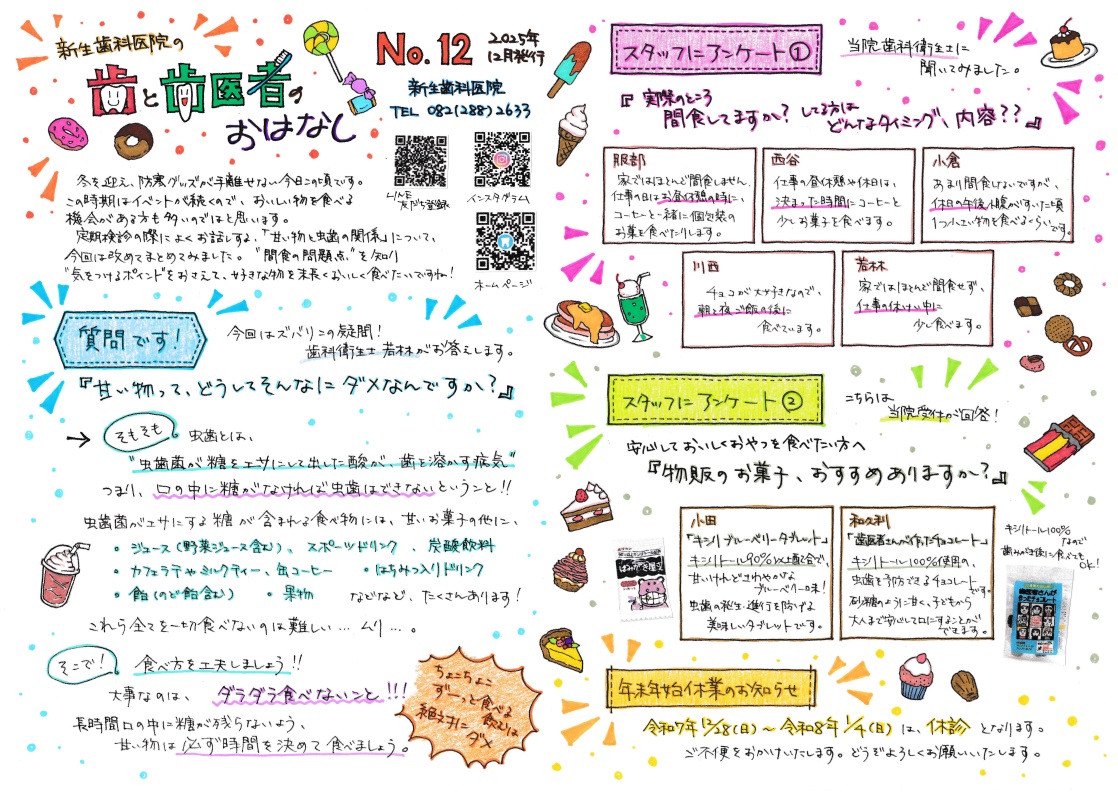 新生歯科医院の
歯と歯医者の
おはなし
No.12
2025年
12月発行
新生歯科医院
TEL 082(288)2633
LINE
友だち登録
インスタグラム
ホームページ
冬を迎え、防寒グッズが手離せない今日この頃です。
この時期はイベントが続くので、おいしい物を食べる
機会がある方も多いのではと思います。
定期検診の際によくお話しする、「甘い物と虫歯の関係」について、
今回は改めてまとめてみました。"間食の問題点"を知り
"気をつけるポイント"をおさえて、好きな物を末長くおいしく食べたいですね!
質問です!
今回はズバリこの疑問!
歯科衛生士 若林がお答えします。
『甘い物って、どうしてそんなにダメなんですか?』
→ そもそも 虫歯とは、
"虫歯菌が糖をエサにして出した酸が、歯を溶かす病気"
つまり、口の中に糖がなければ虫歯はできないということ!!
虫歯菌がエサにする糖が含まれる食べ物には、甘いお菓子の他に、
・ジュース(野菜ジュース含む)、スポーツドリンク、炭酸飲料
・カフェラテやミルクティー、缶コーヒー ・はちみつ入りドリンク
・飴(のど飴含む) ・果物 などなど、たくさんあります!
これら全てを一切食べないのは難しい…ムリ…。
そこで! 食べ方を工夫しましょう!!
大事なのは、ダラダラ食べないこと!!!
長時間口の中に糖が残らないよう、
甘い物は必ず時間を決めて食べましょう。
ちょこちょこ
ずーっと食べる
飲むは
絶対に
ダメ
スタッフにアンケート①
当院歯科衛生士に
聞いてみました。
『実際のところ
間食してますか? してる方は
どんなタイミング、内容??』
服部
家ではほとんど間食しません。
仕事の日はお昼休憩の時に、
コーヒーと一緒に個包装の
お菓子を食べたりします。
西谷
仕事の昼休憩や休日は、
決まった時間にコーヒーと
少しお菓子を食べます。
小倉
あまり間食しないですが、
休日の午後小腹がすいた頃
1つ小さい物を食べるくらいです。
川西
チョコが大好きなので、
朝と夜ご飯の後に
食べています。
若林
家ではほとんど間食せず、
仕事の休けい中に
少し食べます。
スタッフにアンケート②
こちらは
当院受付が回答!
安心しておいしくおやつを食べたい方へ
『物販のお菓子、おすすめありますか?』
小田
「キシリブルーベリータブレット」
キシリトール90%以上配合で、
甘いけれどさわやかな
ブルーベリー味!
虫歯の発生・進行を防げる
美味しいタブレットです。
和久利
「歯医者さんが作ったチョコレート」
キシリトール100%使用の、
虫歯を予防できるチョコレート
です。
砂糖のように甘く、子どもから
大人まで安心して口にすることが
できます。
キシリトール100%
なので
歯みがき後に食べても
OK!
歯医者さんが
作ったチョコレート
年末年始休業のお知らせ
令和7年12/28(日)～令和8年1/4(日)は、休診となります。
ご不便をおかけいたします。どうぞよろしくお願いいたします。